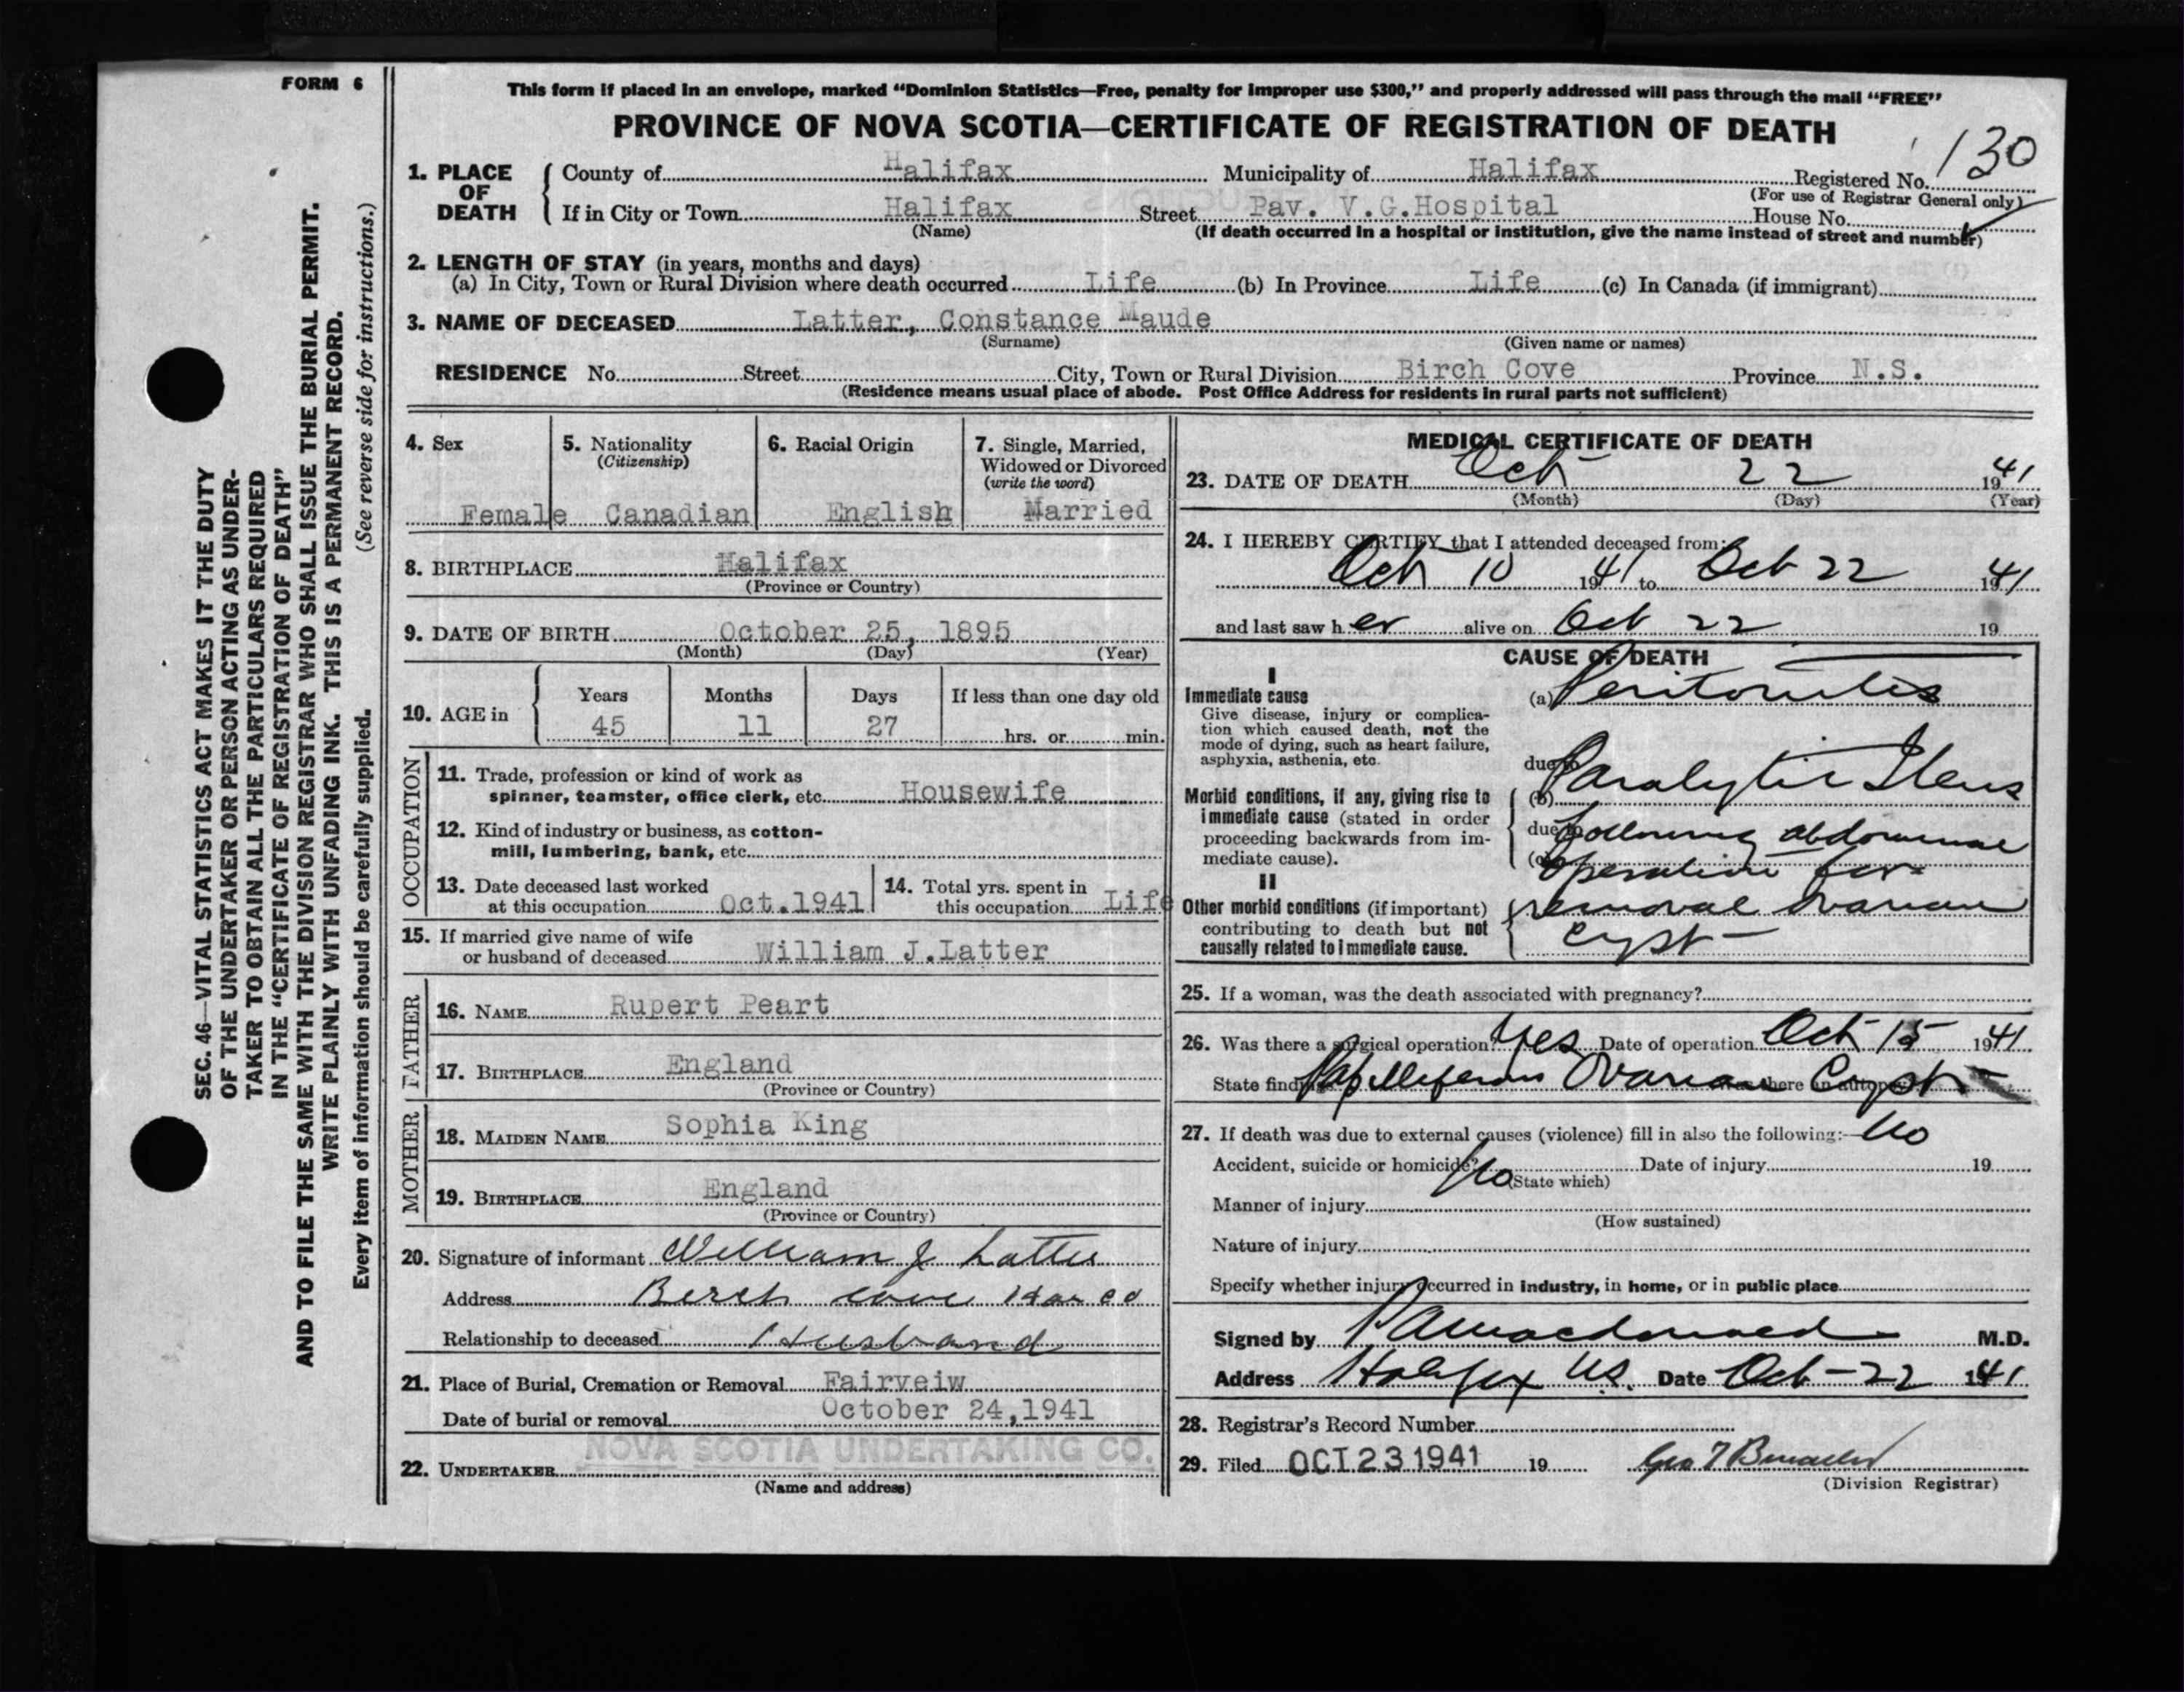 FORM 6
This form if placed in an envelope, marked “Dominion Statistics—Free, penalty for improper use $300,” and properly addressed will pass through the mail “FREE”
PROVINCE OF NOVA SCOTIA—CERTIFICATE OF REGISTRATION OF DEATH
130
1. PLACE OF DEATH County of Halifax Municipality of Halifax Registered No.
(For use of Registrar General only)
If in City or Town Halifax Street Pav. V.G.Hospital House No.
(Name) (If death occurred in a hospital or institution, give the name instead of street and number)
2. LENGTH OF STAY (in years, months and days)
(a) In City, Town or Rural Division where death occurred Life (b) In Province Life (c) In Canada (if immigrant)
3. NAME OF DECEASED Latter, Constance Maude
(Surname) (Given name or names)
RESIDENCE No. Street City, Town or Rural Division Birch Cove Province N.S.
(Residence means usual place of abode. Post Office Address for residents in rural parts not sufficient)
4. Sex
Female
5. Nationality
(Citizenship)
Canadian
6. Racial Origin
English
7. Single, Married,
Widowed or Divorced
(write the word)
Married
8. BIRTHPLACE Halifax
(Province or Country)
9. DATE OF BIRTH October 25, 1895
(Month) (Day) (Year)
10. AGE in
Years Months Days If less than one day old
45 11 27 hrs. or min.
OCCUPATION
11. Trade, profession or kind of work as
spinner, teamster, office clerk, etc. Housewife
12. Kind of industry or business, as cotton-
mill, lumbering, bank, etc.
13. Date deceased last worked
at this occupation Oct.1941
14. Total yrs. spent in
this occupation Life
15. If married give name of wife
or husband of deceased William J.Latter
FATHER
16. NAME Rupert Peart
17. BIRTHPLACE England
(Province or Country)
MOTHER
18. MAIDEN NAME Sophia King
19. BIRTHPLACE England
(Province or Country)
20. Signature of informant William J Latter
Address Berch cove Hax co
Relationship to deceased Husband
21. Place of Burial, Cremation or Removal Fairveiw
Date of burial or removal October 24,1941
NOVA SCOTIA UNDERTAKING CO.
22. UNDERTAKER
(Name and address)
MEDICAL CERTIFICATE OF DEATH
23. DATE OF DEATH Oct 22 1941
(Month) (Day) (Year)
24. I HEREBY CERTIFY that I attended deceased from:
Oct 10 1941 to Oct 22 1941
and last saw h er alive on Oct 22 19
CAUSE OF DEATH
I
Immediate cause
Give disease, injury or complica-
tion which caused death, not the
mode of dying, such as heart failure,
asphyxia, asthenia, etc.
(a) Peritonitis
due to
Morbid conditions, if any, giving rise to
immediate cause (stated in order
proceeding backwards from im-
mediate cause).
(b) Paralytic Ileus
due to following abdominal
(c) operation for
II
Other morbid conditions (if important)
contributing to death but not
causally related to immediate cause.
removal ovarian
cyst
25. If a woman, was the death associated with pregnancy?
26. Was there a surgical operation? Yes Date of operation Oct 15 1941
State findings Papilliferous Ovarian Cyst Was there an autopsy?
27. If death was due to external causes (violence) fill in also the following:— No
Accident, suicide or homicide? No Date of injury 19
(State which)
Manner of injury
(How sustained)
Nature of injury
Specify whether injury occurred in industry, in home, or in public place
Signed by Macdonald M.D.
Address Halifax N.S. Date Oct-22 1941
28. Registrar's Record Number
29. Filed OCT 23 1941 19
(Division Registrar)
SEC. 46—VITAL STATISTICS ACT MAKES IT THE DUTY
OF THE UNDERTAKER OR PERSON ACTING AS UNDER-
TAKER TO OBTAIN ALL THE PARTICULARS REQUIRED
IN THE “CERTIFICATE OF REGISTRATION OF DEATH”
AND TO FILE THE SAME WITH THE DIVISION REGISTRAR WHO SHALL ISSUE THE BURIAL PERMIT.
WRITE PLAINLY WITH UNFADING INK. THIS IS A PERMANENT RECORD.
Every item of information should be carefully supplied. (See reverse side for instructions.)